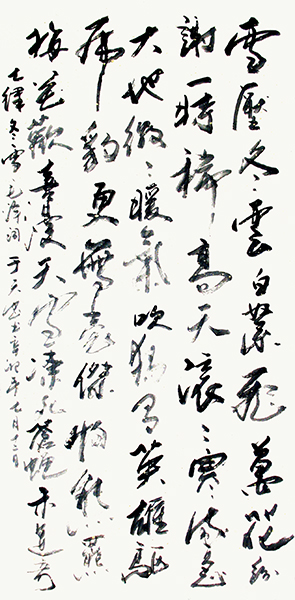 雪壓冬雲白絮飛萬花紛
謝一時稀高天滚〻寒流急
大地微〻暖氣吹獨有英雄驅
虎豹更無豪傑怕熊羆
梅花歡喜漫天雪凍死蒼蠅未足奇
七律冬雪毛澤東詞于天書辛卯年七月十二日